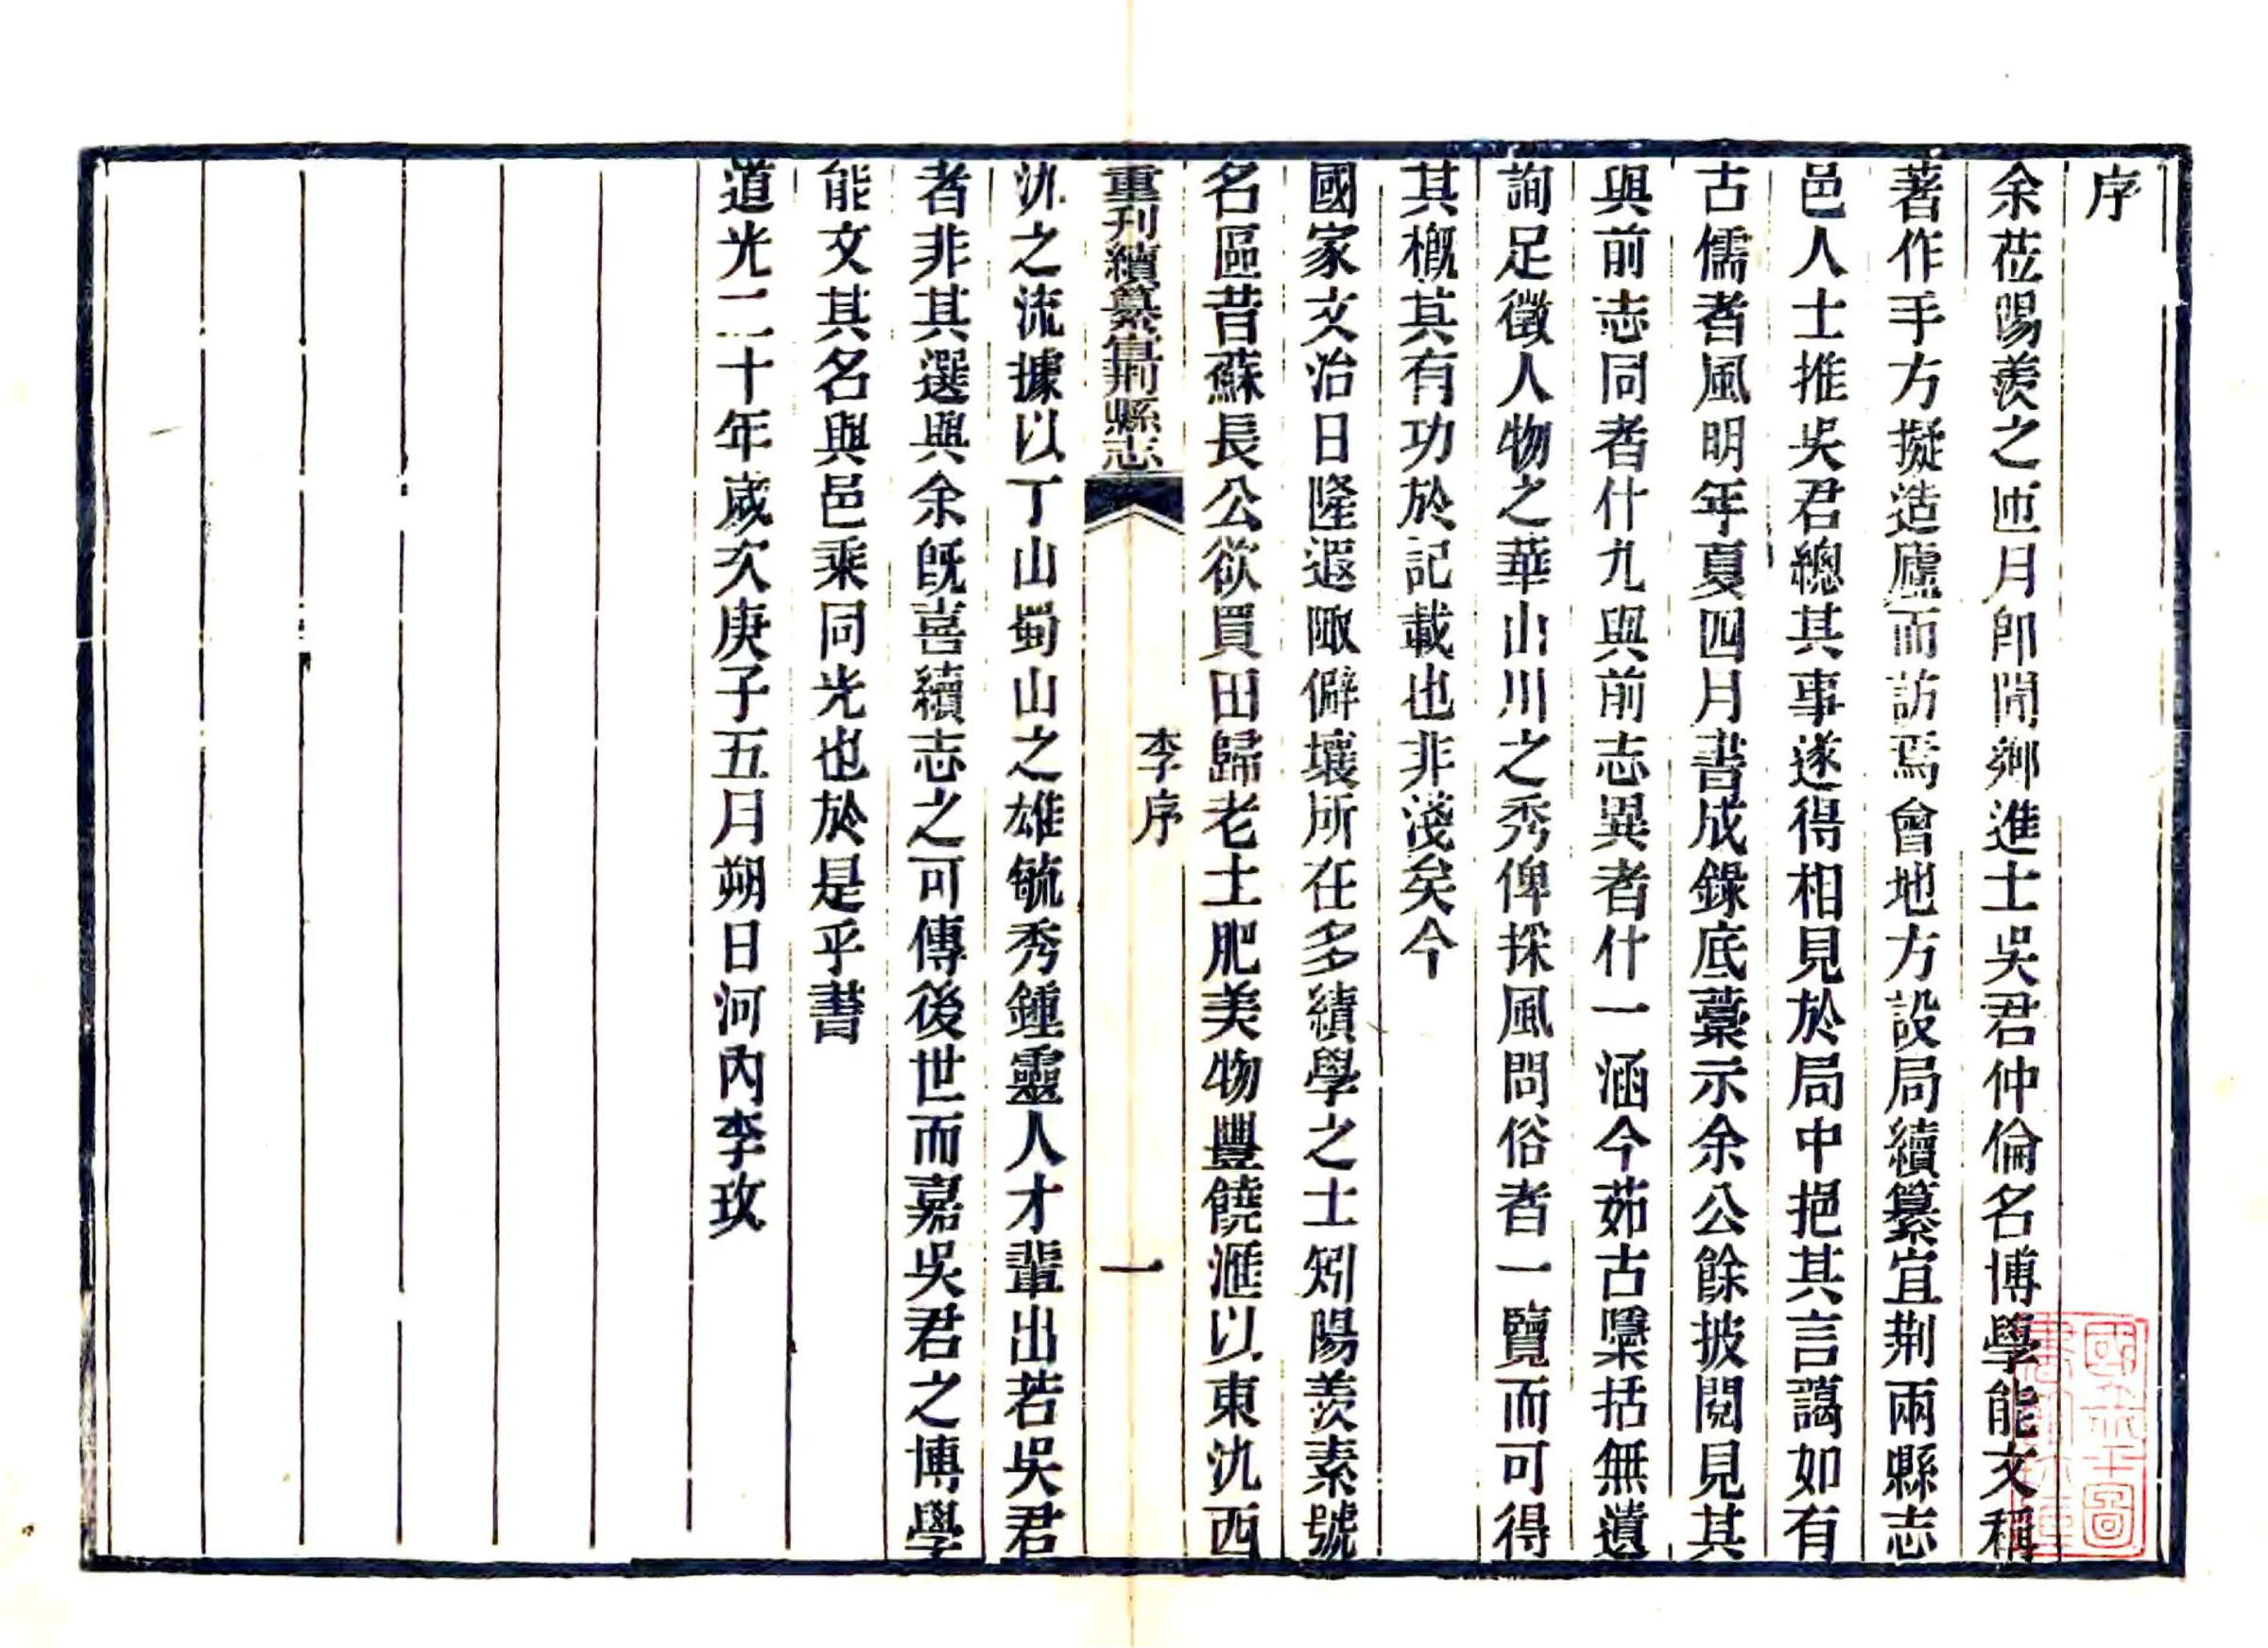 序
余莅陽羨之匝月卽聞鄉進士吳君仲倫名博學能文稱
著作手方擬造廬而訪焉會地方設局續纂宜荆兩縣志
邑人士推吳君總其事遂得相見於局中挹其言藹如有
古儒者風明年夏四月書成錄底藁示余公餘披閱見其
與前志同者什九與前志異者什一涵今茹古櫽括無遺
詢足徵人物之華山川之秀俾採風問俗者一覽而可得
其槪其有功於記載也非淺矣今
國家文治日隆遐陬僻壤所在多績學之士矧陽羨素號
名區昔蘇長公欲買田歸老土肥美物豐饒滙以東氿西
重刊續纂宜荆縣志
李序
一
氿之流據以丁山蜀山之雄毓秀鍾靈人才輩出若吳君
者非其選與余旣喜續志之可傳後世而嘉吳君之博學
能文其名與邑乘同光也於是乎書
道光二十年歲次庚子五月朔日河內李玫